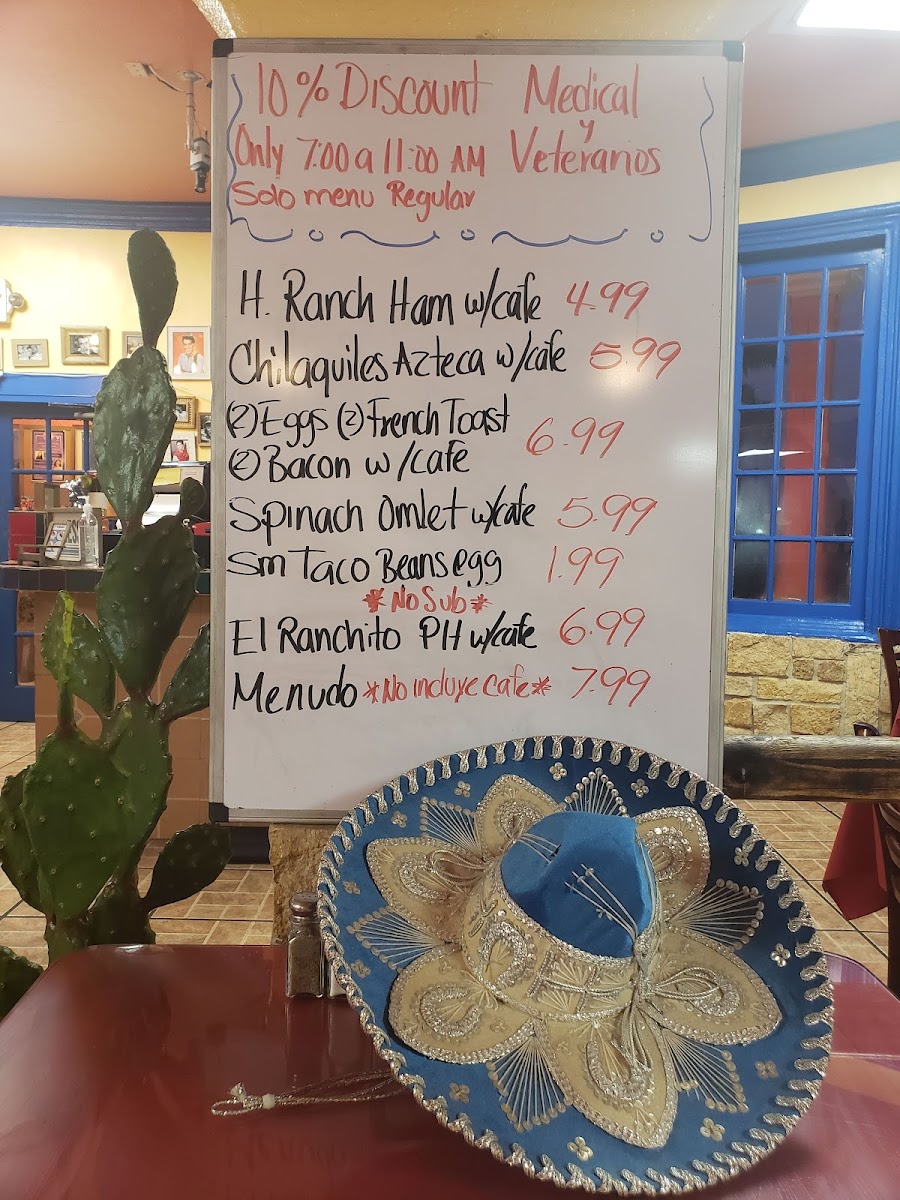 10% Discount Medical
y
Only 7:00 a 11:00 AM Veteranos
Solo menu Regular
H. Ranch Ham w/cafe 4.99
Chilaquiles Azteca w/cafe 5.99
(2) Eggs (2) French Toast
(2) Bacon w/cafe 6.99
Spinach Omlet w/cafe 5.99
Sm Taco Beans egg 1.99
*No Sub*
El Ranchito PH w/cafe 6.99
Menudo *No incluye cafe* 7.99